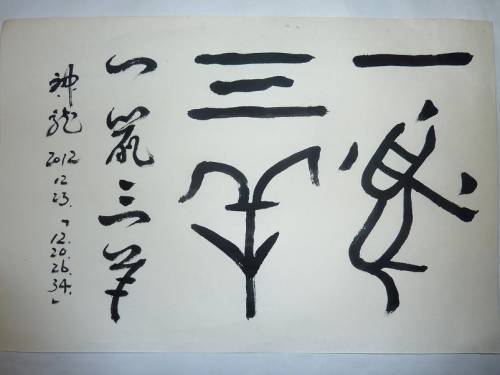 一鼠
三羊
一鼠三羊
神龍 2012 12 23. 「12. 20. 26. 34.」